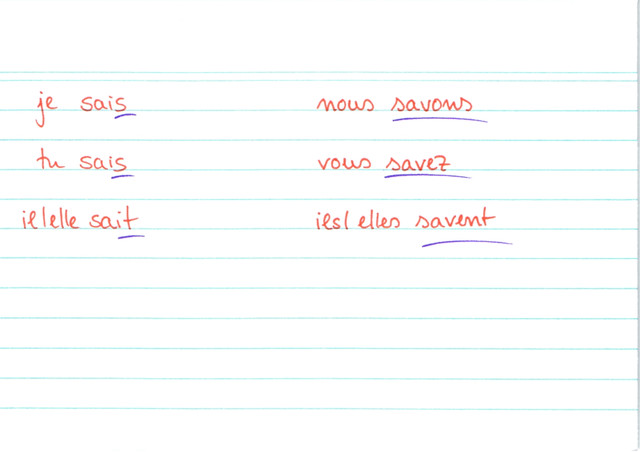 je sais nous savons
tu sais vous savez
il/elle sait ils/elles savent